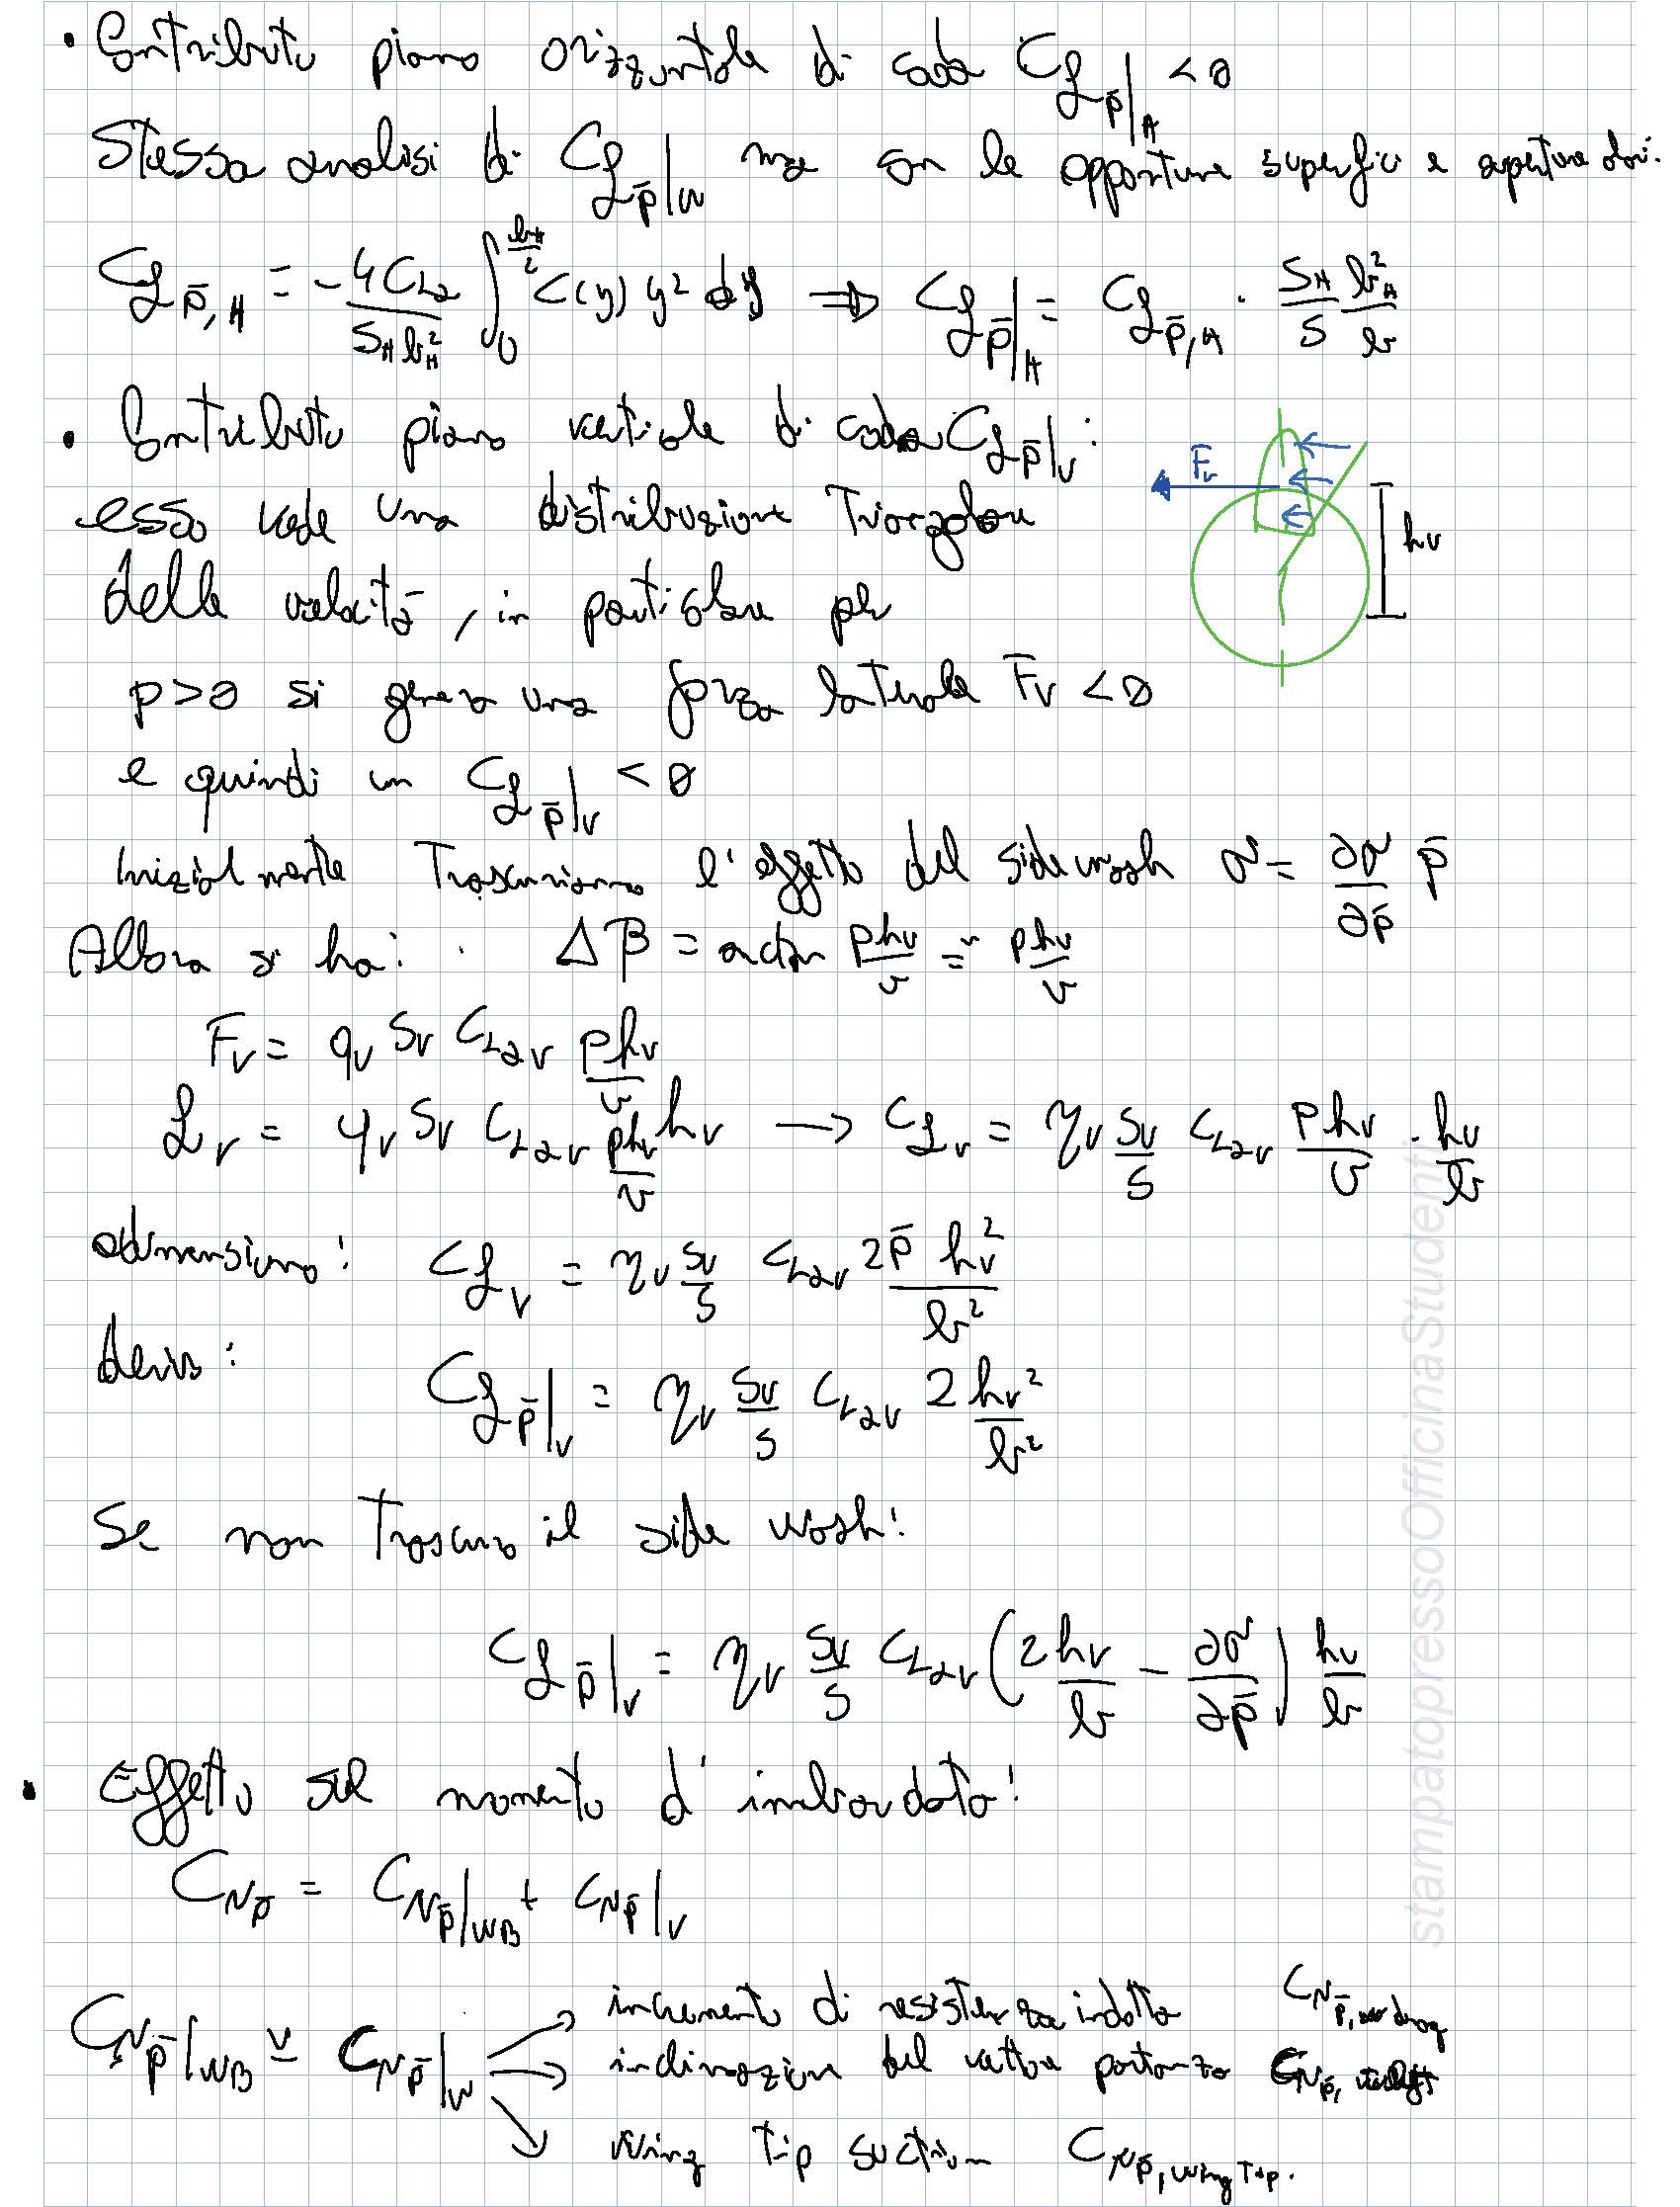 • Contributo piano orizzontale di coda C_ℒ_p̄|_H < 0
Stessa analisi di C_ℒ_p̄|_W ma con le opportune superfici e aperture alari.
C_ℒ_p̄,H = - 4 C_Lα / (S_H b_H²) ∫_0^(b_H/2) c(y) y² dy ⇒ C_ℒ_p̄|_H = C_ℒ_p̄,H · S_H/S b_H²/b
• Contributo piano verticale di coda C_ℒ_p̄|_V :
esso vede una distribuzione Triangolare
F_v
h_v
della velocità, in particolare per
p > 0 si genera una forza laterale F_v < 0
e quindi un C_ℒ_p̄|_V < 0
Inizialmente Trascuriamo l'effetto del sidewash σ = ∂σ/∂p̄ p̄
Allora si ha: Δβ = arctan p h_v / v ≃ p h_v / v
F_v = q_v S_v C_Lαv p h_v / v
ℒ_v = q_v S_v C_Lαv p h_v / v h_v → C_ℒ_v = η_v S_v/S C_Lαv p h_v / v · h_v/b
adimensiono: C_ℒ_v = η_v S_v/S C_Lαv 2 p̄ h_v² / b²
derivo: C_ℒ_p̄|_v = η_v S_v/S C_Lαv 2 h_v² / b²
Se non Trascuro il side wash:
C_ℒ_p̄|_v = η_v S_v/S C_Lαv (2 h_v / b - ∂σ/∂p̄) h_v/b
• Effetto sul momento d'imbardata:
C_N_p̄ = C_N_p̄|_WB + C_N_p̄|_V
C_N_p̄|_WB ≃ C_N_p̄|_W → incremento di resistenza indotta C_N_p̄, drag
→ inclinazione del vettore portanza
→ wing tip suction C_N_p̄, wing Tip.
stampatopressoOfficinaStudenti